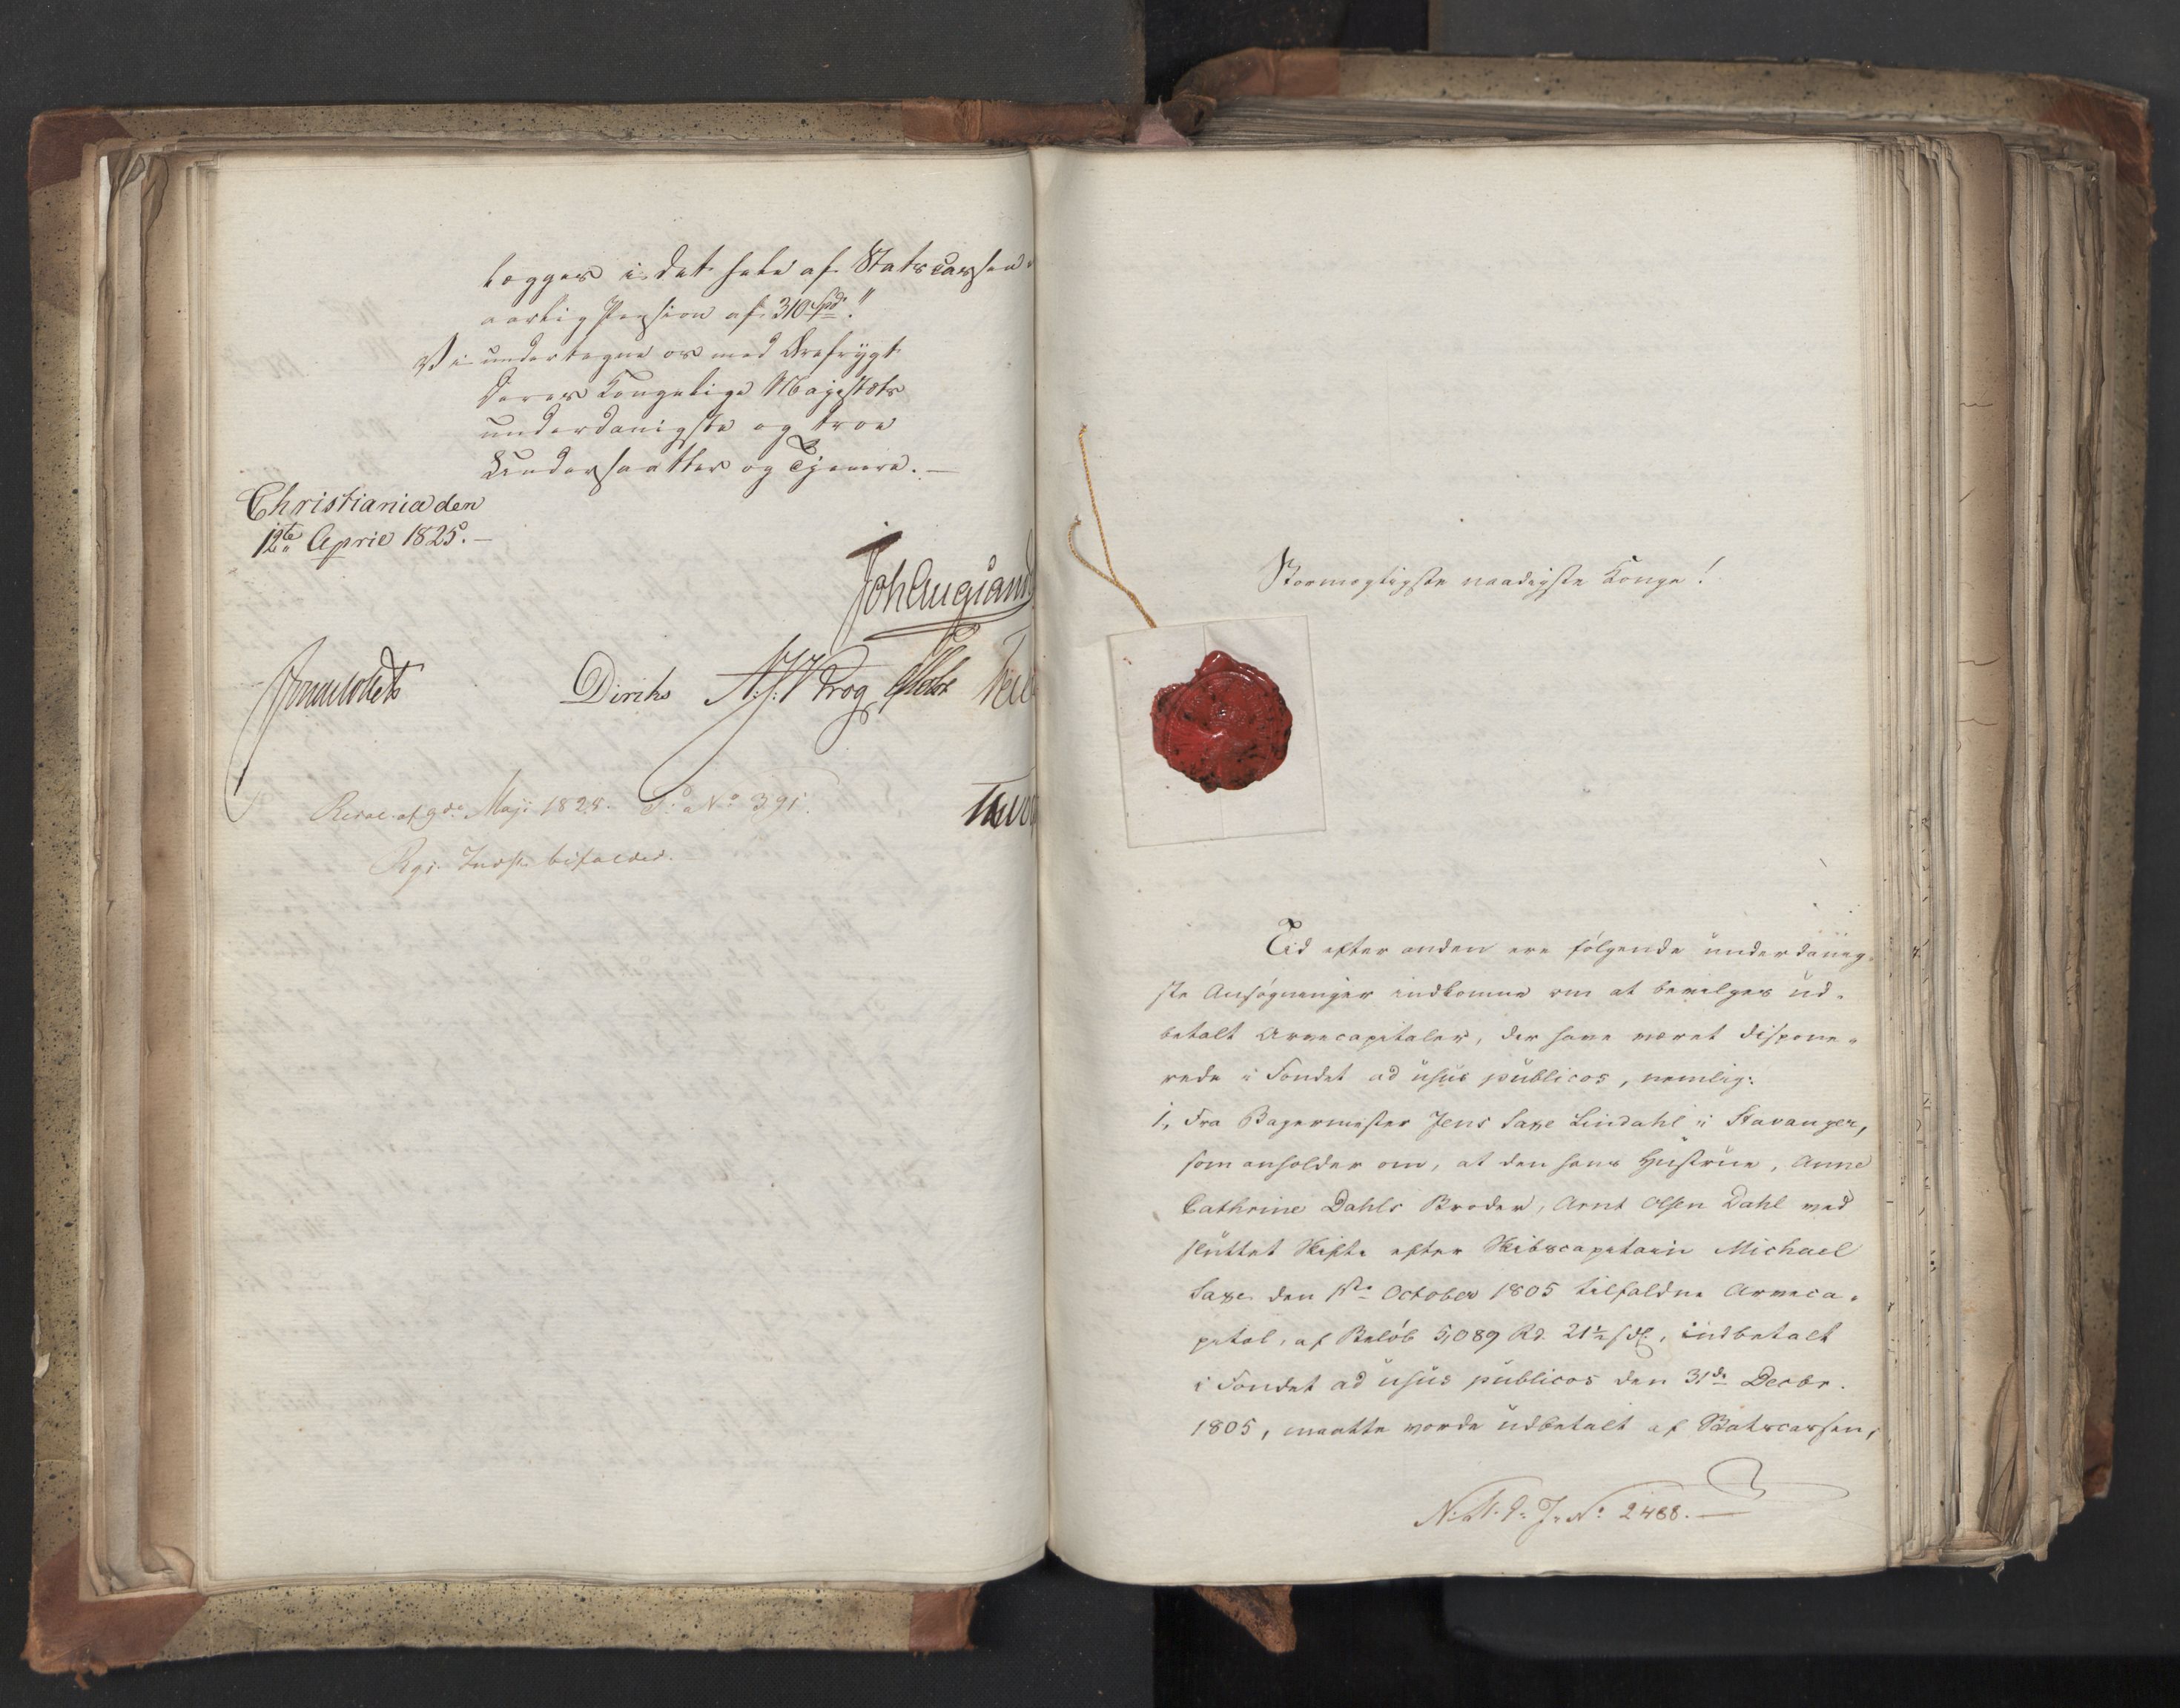 lægges i det hele af Statscassen
aarlig Pension af 310 Spd."
Vi undertegne os med Ærefrygt
Deres Kongelige Majestæts
underdanigste og troe
Undersaatter og Tjenere. —
Christiania den
12te April 1825. —
Joh Aug Sand
Sommerhielm
Diriks A. J. Krog Holst
Resol. af 9de Maji 1825. No 391.
Rgs. Indst. bifaldes.
Stormægtigste naadigste Konge!
Tid efter anden ere følgende underdanig-
ste Ansøgninger indkomne om at bevilges ud-
betalt Arvecapitaler, der have været dispone-
rede i Fondet ad usus publicos, nemlig:
1, Fra Bagermester Jens Saxe Lindahl i Stavanger,
som anholder om, at den hans Hustrue, Anne
Cathrine Dahls Broder, Arnt Olsen Dahl ved
sluttet Skifte efter Skibscapitain Michael
Saxe den 1ste October 1805 tilfaldne Arveca-
pital, af Beløb 5,089 Rd. 21½ s, indbetalt
i Fondet ad usus publicos den 31de Decbr.
1805, maatte vorde udbetalt af Statscassen,
No 2488. —